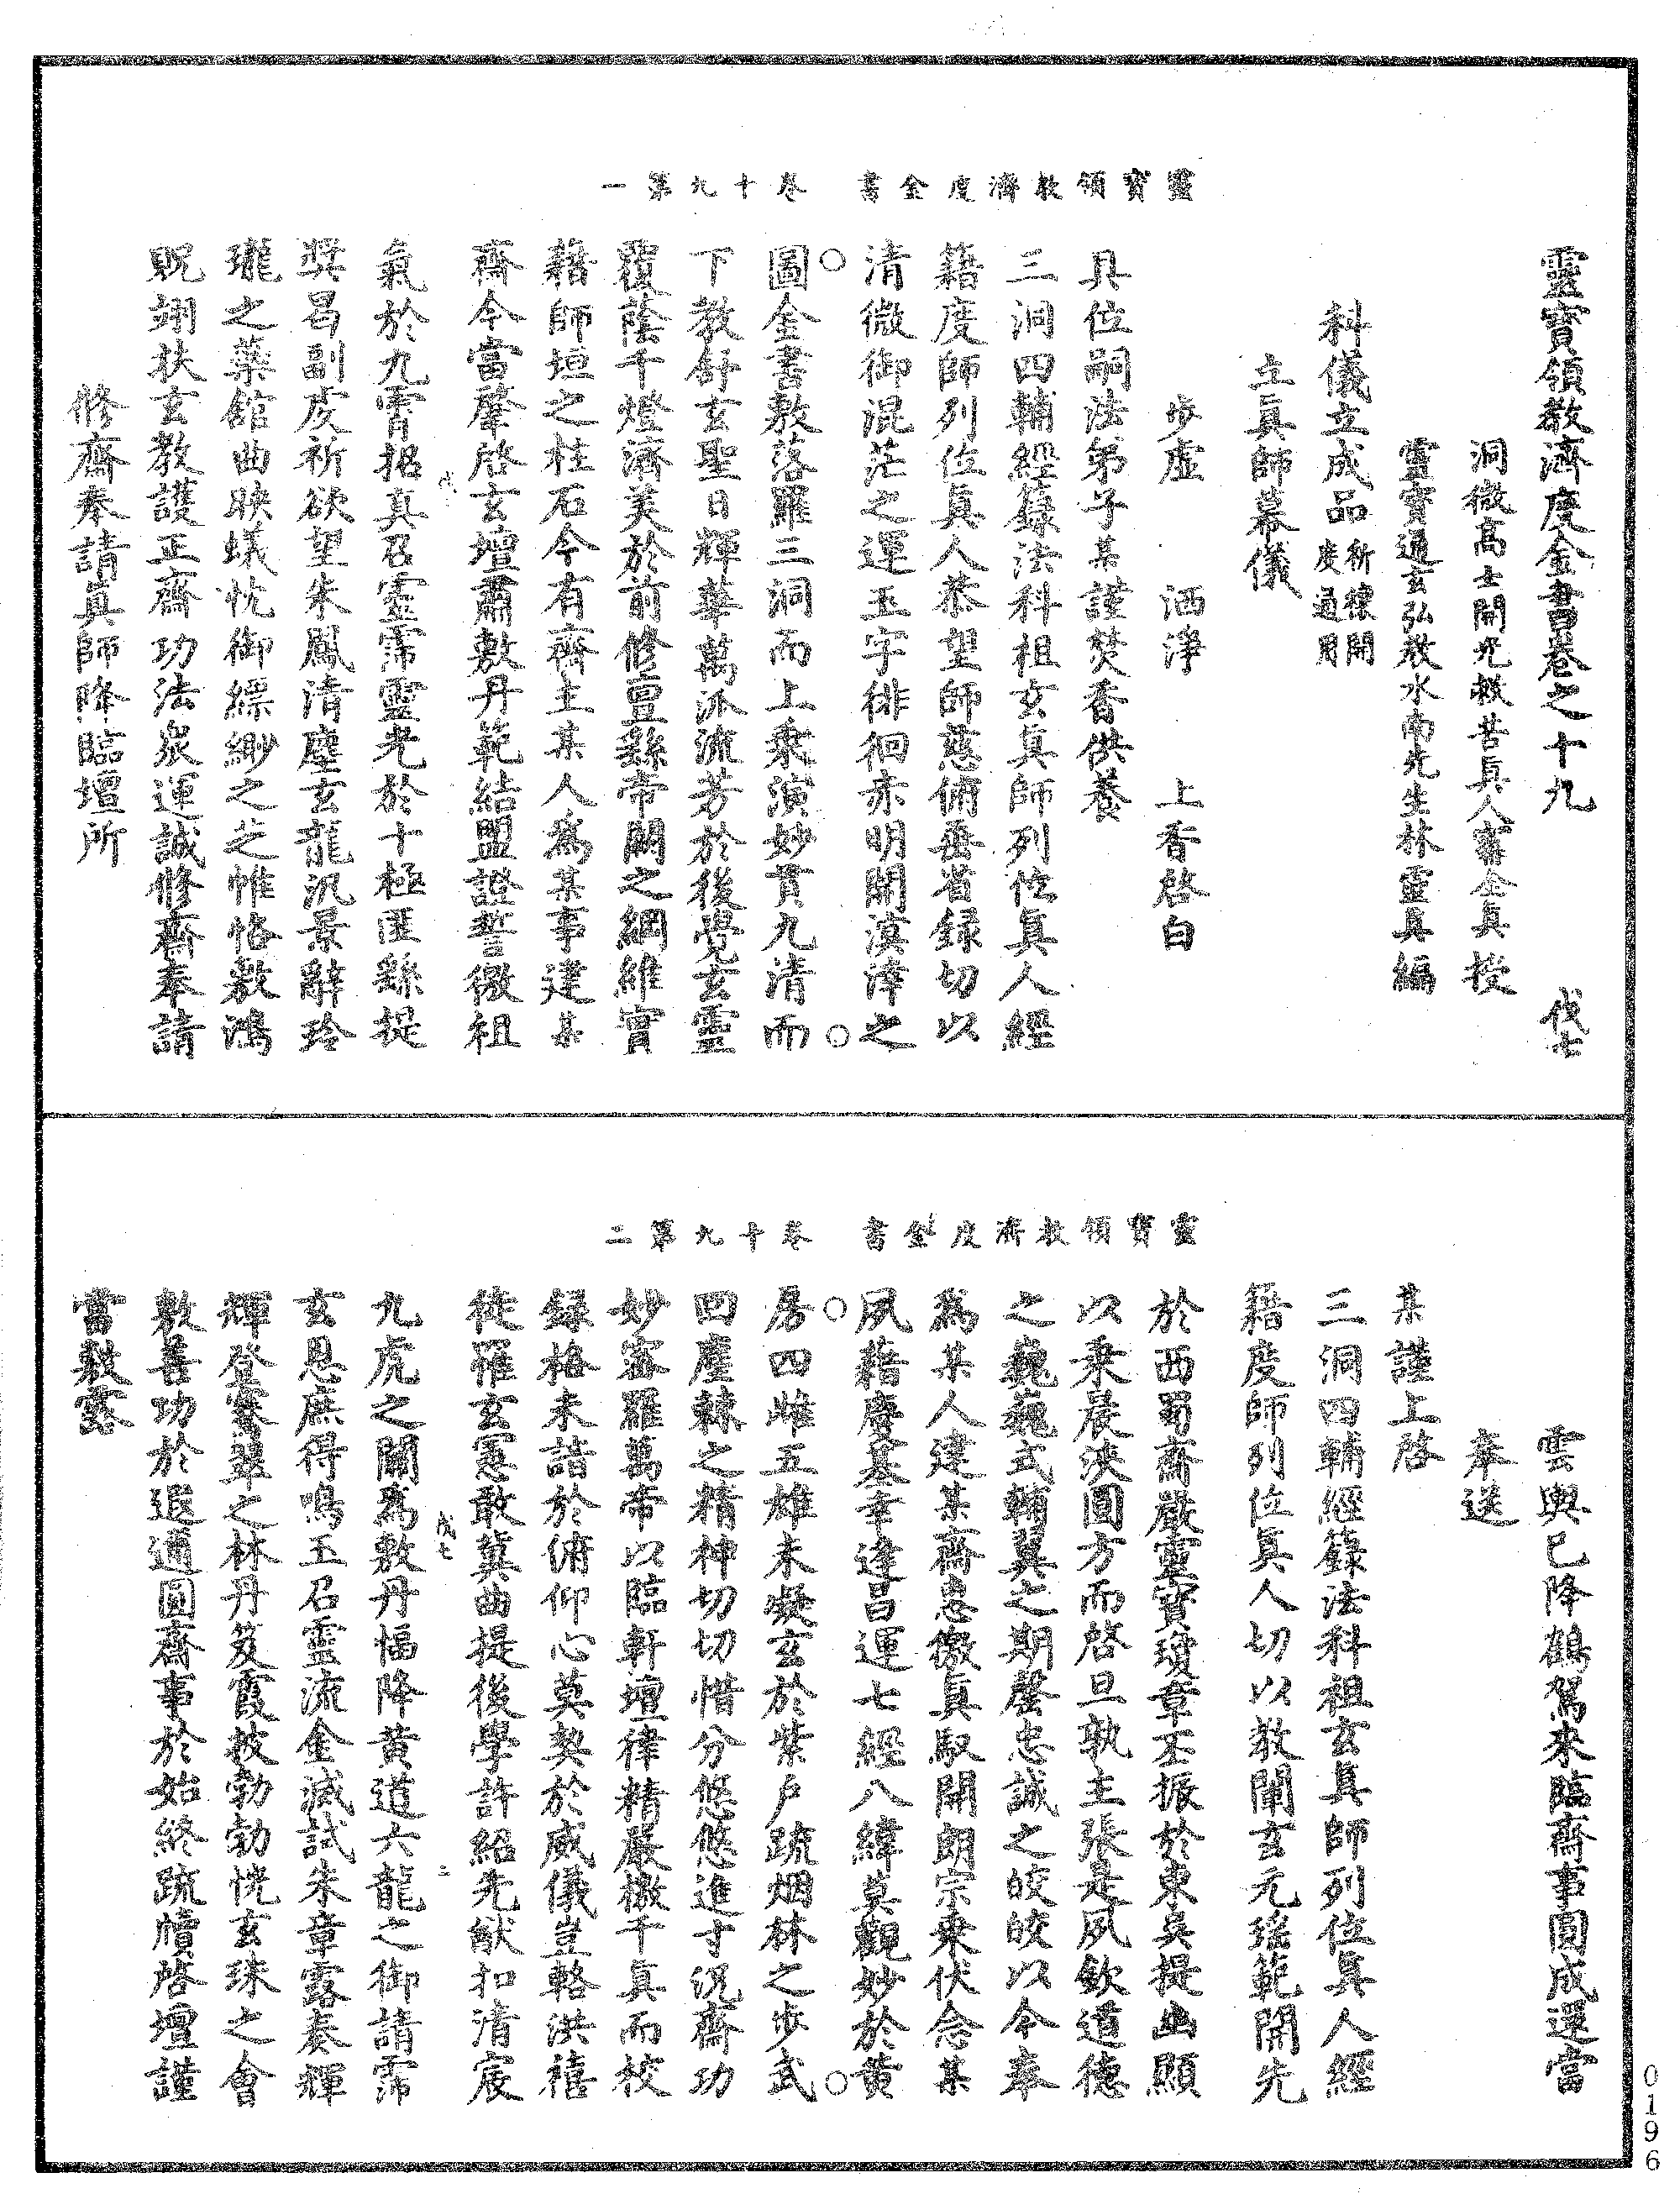 靈寶領教濟度金書 卷十九第一
靈寶領教濟度金書卷之十九 伐七
洞微高士開光救苦真人甯全真授
靈寶通玄弘教水南先生林靈真編
科儀立成品祈禳開度通用
立真師幕儀
步虛 洒淨 上香啓白
具位嗣法弟子某謹焚香供養
三洞四輔經籙法科祖玄真師列位真人經
籍度師列位真人恭望師慈俯垂省録切以
清微御混茫之運玉字徘徊赤明開溟涬之
圖金書敷落羅三洞而上乘演妙貫九清而
下教舒玄聖日輝華萬派流芳於後覺玄靈
覆蔭千燈濟美於前修亶繇帝闕之綱維實
藉師垣之柱石今有齋主某人爲某事建某
齋今當肇啓玄壇肅敷丹範結盟證誓徼祖
氣於九霄招真召靈霈靈光於十極匪繇提
奨曷副虔祈欲望朱鳳清塵玄龍汎景辭玲
瓏之藥舘曲映蟻忱御縹緲之芝帷恪敷鴻
貺翊扶玄教護正齋功法衆運誠修齋奉請
修齋奉請真師降臨壇所
靈寶領教濟度金書 卷十九第二
雲輿已降鶴駕來臨齋事圓成還當
奉送
某謹上啓
三洞四輔經籙法科祖玄真師列位真人經
籍度師列位真人切以教闡玄元瑤範開先
於西蜀齋嚴靈寶瓊章丕振於東吳提幽顯
以乘晨浹圓方而啓旦孰主張是夙欽道德
之巍巍式輔翼之期罄忠誠之皎皎以今奉
爲某人建某齋恚徼真馭開朗宗乘伏念某
夙藉磨墓幸逢昌運七經八緯莫觀妙於黄
房四雌五雄未凝玄於紫戶疏烟林之步武
回塵棘之精神切切惜分悠悠進寸況齋功
妙密羅萬帝以臨軒壇律精嚴檄千真而校
録格未詣於俯仰心莫契於威儀豈輅洪禧
徒罹玄憲敢冀曲提後學許紹先猷扣清宸
九虎之關爲敷丹悃降黄道六龍之御請霈
玄恩庶得鳴玉召靈流金滅試朱章露奏輝
輝登寒翠之林丹笈霞披勃勃恍玄珠之會
敷善功於遐邇圓齋事於始終疏牘啓壇謹
當敷露
伐七 二
0196